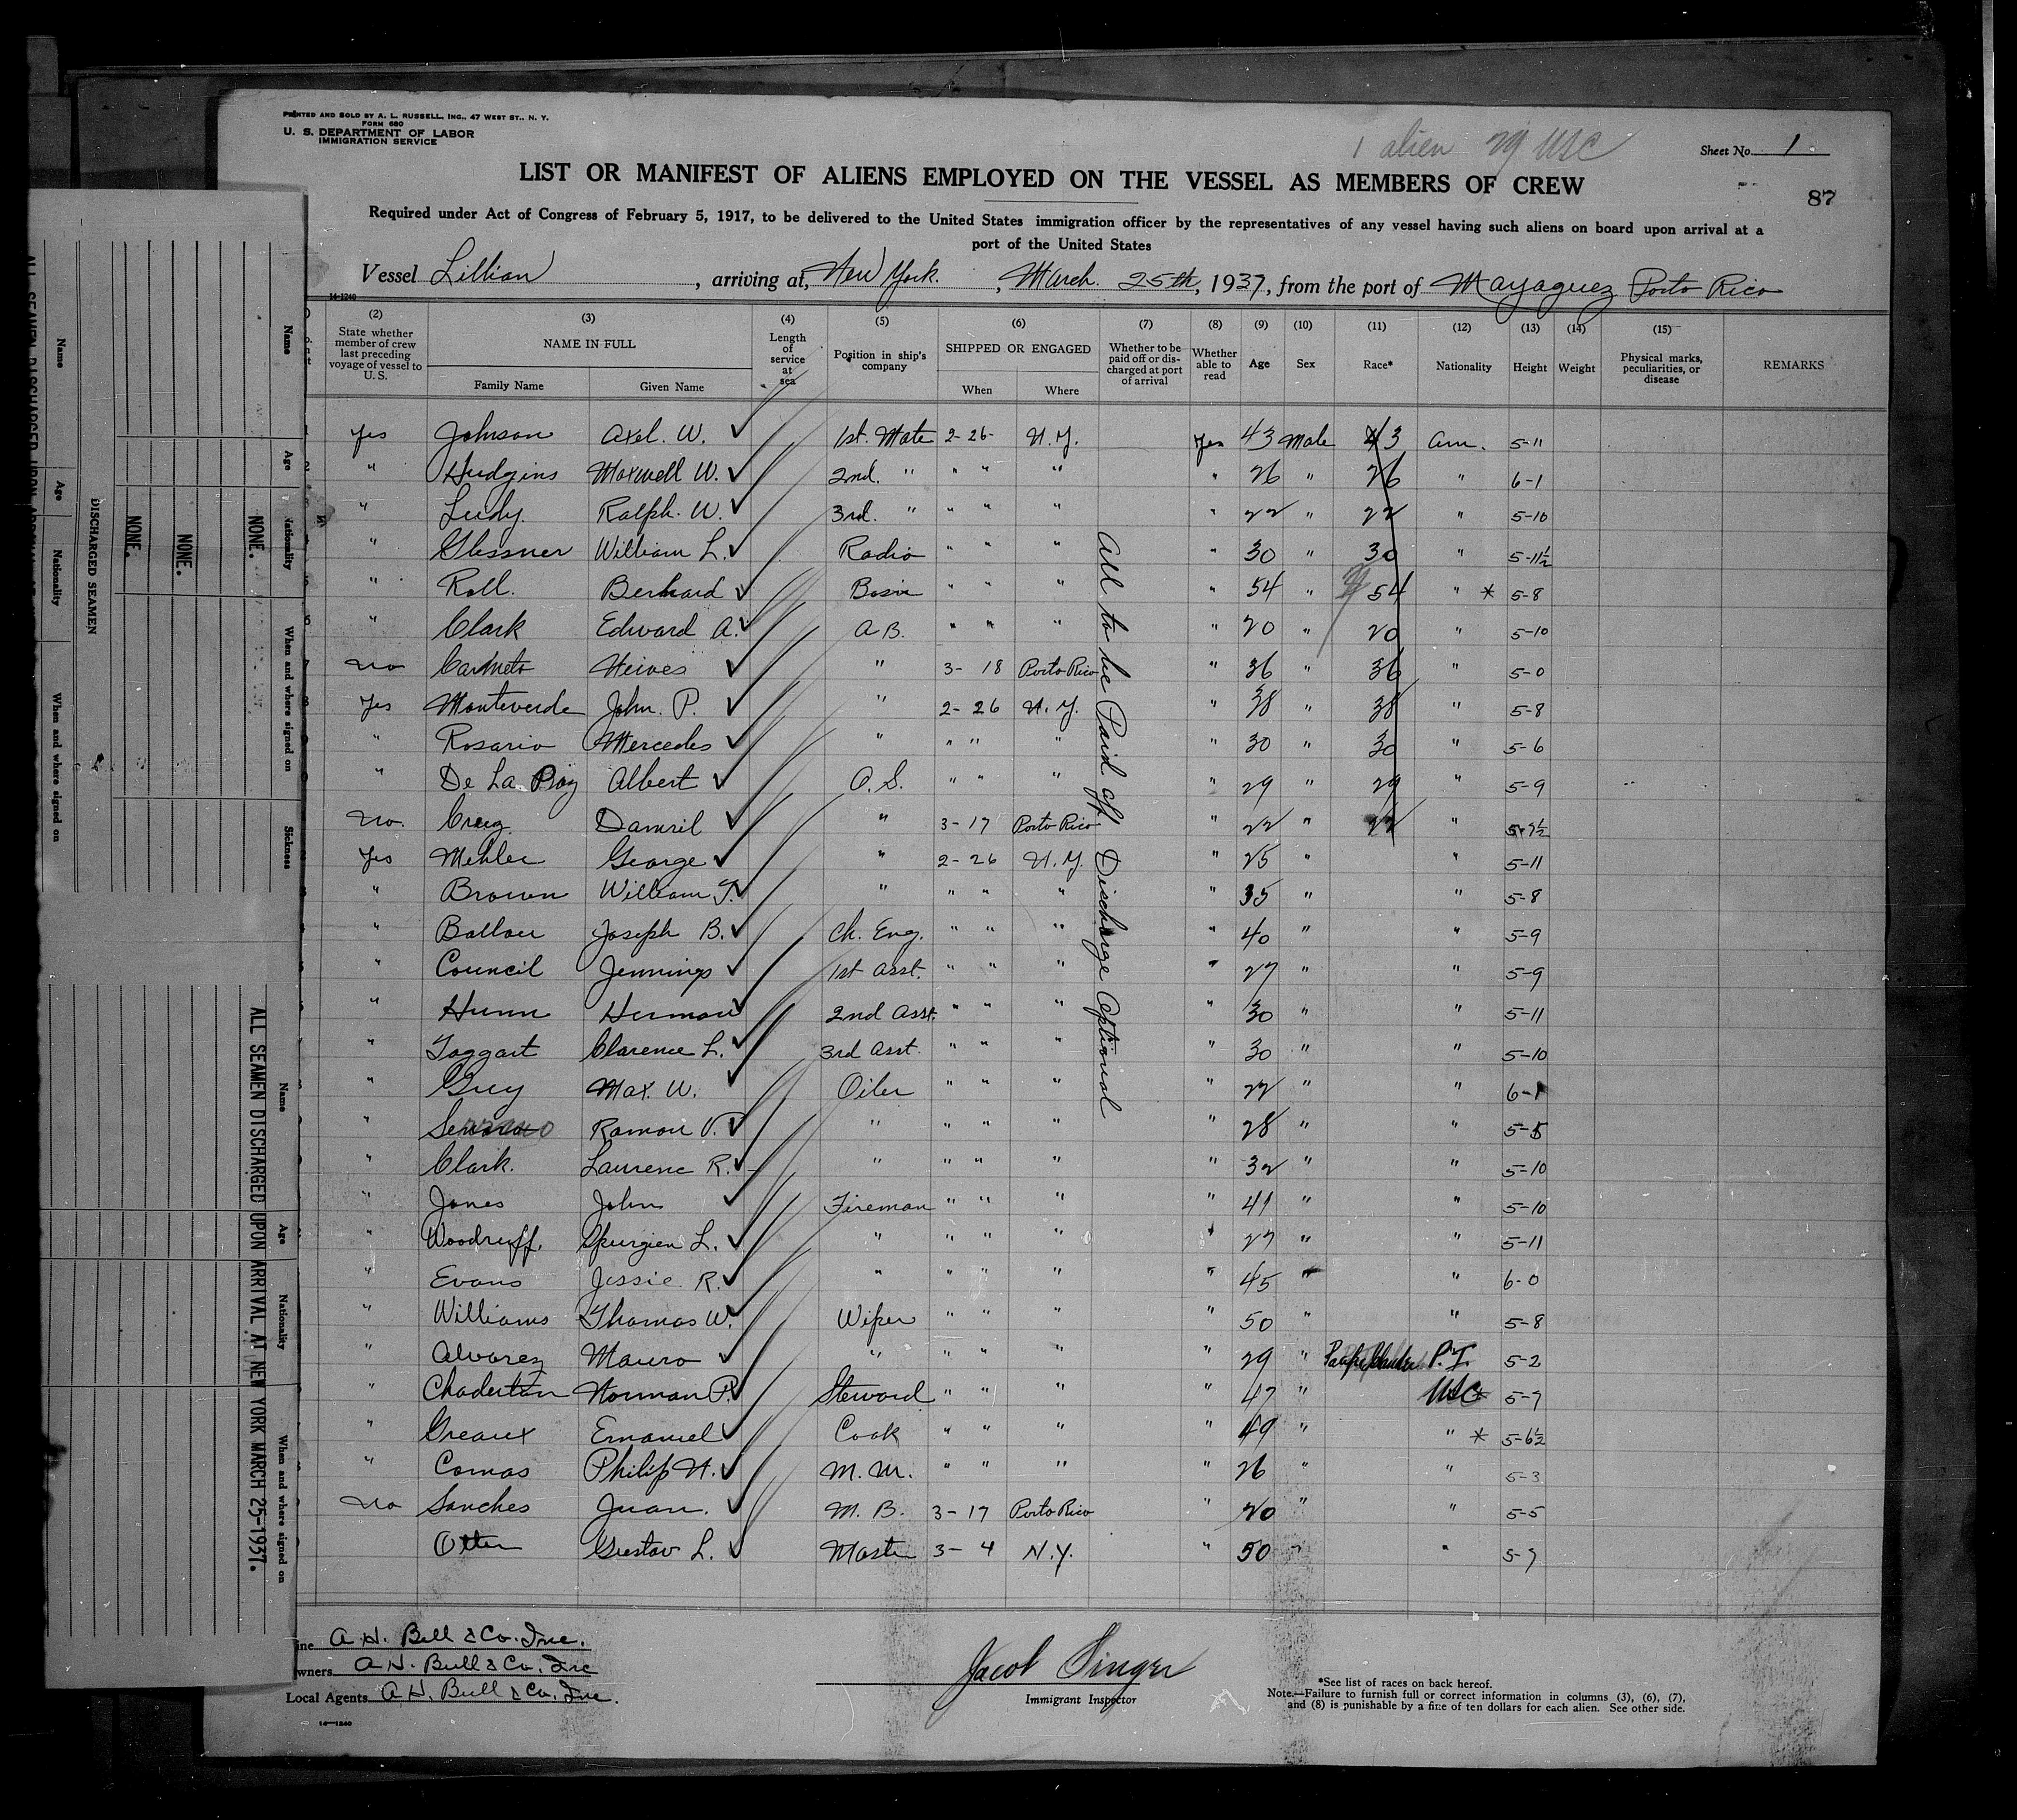 PRINTED AND SOLD BY A. L. RUSSELL, INC., 47 WEST ST., N. Y.
FORM 680
U. S. DEPARTMENT OF LABOR
IMMIGRATION SERVICE
1 alien 29 USC
Sheet No. 1
87
LIST OR MANIFEST OF ALIENS EMPLOYED ON THE VESSEL AS MEMBERS OF CREW
Required under Act of Congress of February 5, 1917, to be delivered to the United States immigration officer by the representatives of any vessel having such aliens on board upon arrival at a
port of the United States
Vessel Lillian, arriving at, New York, March. 25th, 1937, from the port of Mayaguez Porto Rico
14-1240
(2) (3) (4) (5) (6) (7) (8) (9) (10) (11) (12) (13) (14) (15)
State whether member of crew last preceding voyage of vessel to U. S. NAME IN FULL Family Name Given Name Length of service at sea Position in ship's company SHIPPED OR ENGAGED When Where Whether to be paid off or discharged at port of arrival Whether able to read Age Sex Race* Nationality Height Weight Physical marks, peculiarities, or disease REMARKS
Yes Johnson Axel. W. 1st. Mate 2-26- N.Y. Yes 43 Male 43 Am. 5-11
" Hudgins Maxwell W. 2nd. " " " " " 26 " 26 " 6-1
" Ludy. Ralph. W. 3rd. " " " " " 22 " 22 " 5-10
" Glessner William L. Radio " " " " 30 " 30 " 5-11½
" Roll. Bernhard Bosin " " " " 54 " 54 " * 5-8
" Clark Edward A. A B. " " " " 20 " 20 " 5-10
No Nieves " 3- 18 Porto Rico " 36 " 36 " 5-0
Yes Monteverde John. P. " 2- 26 N.Y. " 38 " 38 " 5-8
" Rosario Mercedes " " " " " 30 " 30 " 5-6
" De La Albert O. S. " " " " 29 " 29 " 5-9
No. " 3-17 Porto Rico " 22 " 22 "
Yes Mehler George " 2- 26 N.Y. " 25 " " 5-11
" Brown William T. " " " " " 35 " " 5-8
" Joseph B. Ch. Eng. " " " " 40 " " 5-9
" Council Jennings 1st Asst. " " " " 27 " " 5-9
" Hunn Herman 2nd Asst. " " " " 30 " " 5-11
" Taggart Clarence L. 3rd Asst. " " " " 30 " " 5-10
" Guy Max. W. Oiler " " " " 22 " " 6-1
" Ramon V. " " " " " 28 " " 5-5
" Clark. Laurenc R. " " " " " 32 " " 5-10
" Jones John Fireman " " " " 41 " " 5-10
" Woodruff. Spurgien L. " " " " " 27 " " 5-11
" Evans Jessie R. " " " " " 45 " " 6-0
" Williams Thomas W. Wiper " " " " 50 " " 5-8
" Alvarez Mauro " " " " " 29 " P.I. 5-2
" Chaderton Norman P. Steward " " " " 47 " USC* 5-7
" Greaux Emanuel Cook " " " " 49 " " * 5-6½
" Comas Philip N. M. M. " " " " 26 " " 5-3
No Sanches Juan. M. B. 3- 17 Porto Rico " 20 " " 5-5
Otten Gustav L. Master 3- 4 N.Y. " 50 " " 5-7
All to be Paid off Discharge Optional
Line A. H. Bull & Co. Inc.
Owners A. H. Bull & Co. Inc
Local Agents A. H. Bull & Co. Inc.
14—1240
Jacob Singer
Immigrant Inspector
*See list of races on back hereof.
Note.—Failure to furnish full or correct information in columns (3), (6), (7),
and (8) is punishable by a fine of ten dollars for each alien. See other side.
Name Age Nationality When and where signed on
DISCHARGED SEAMEN
NONE.
NONE.
NONE.
Name Age Nationality When and where signed on Sickness
ALL SEAMEN DISCHARGED UPON ARRIVAL AT NEW YORK MARCH 25-1937.
Name Age Nationality When and where signed on